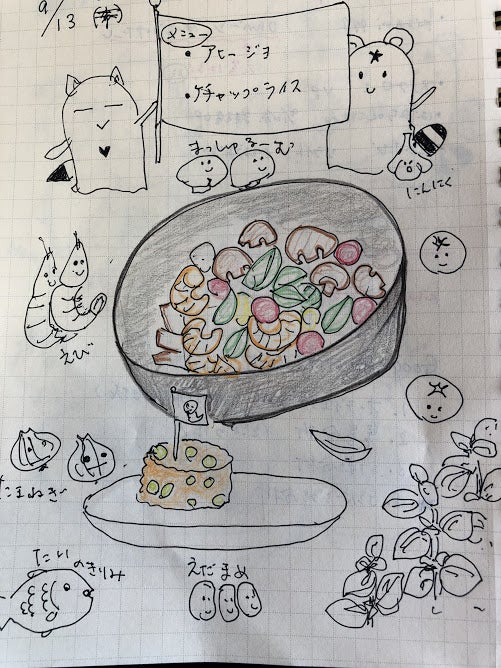 9/13
メニュー
・アヒージョ
・ケチャップライス
まっしゅるーむ
にんにく
えび
たまねぎ
たいのきりみ
えだまめ